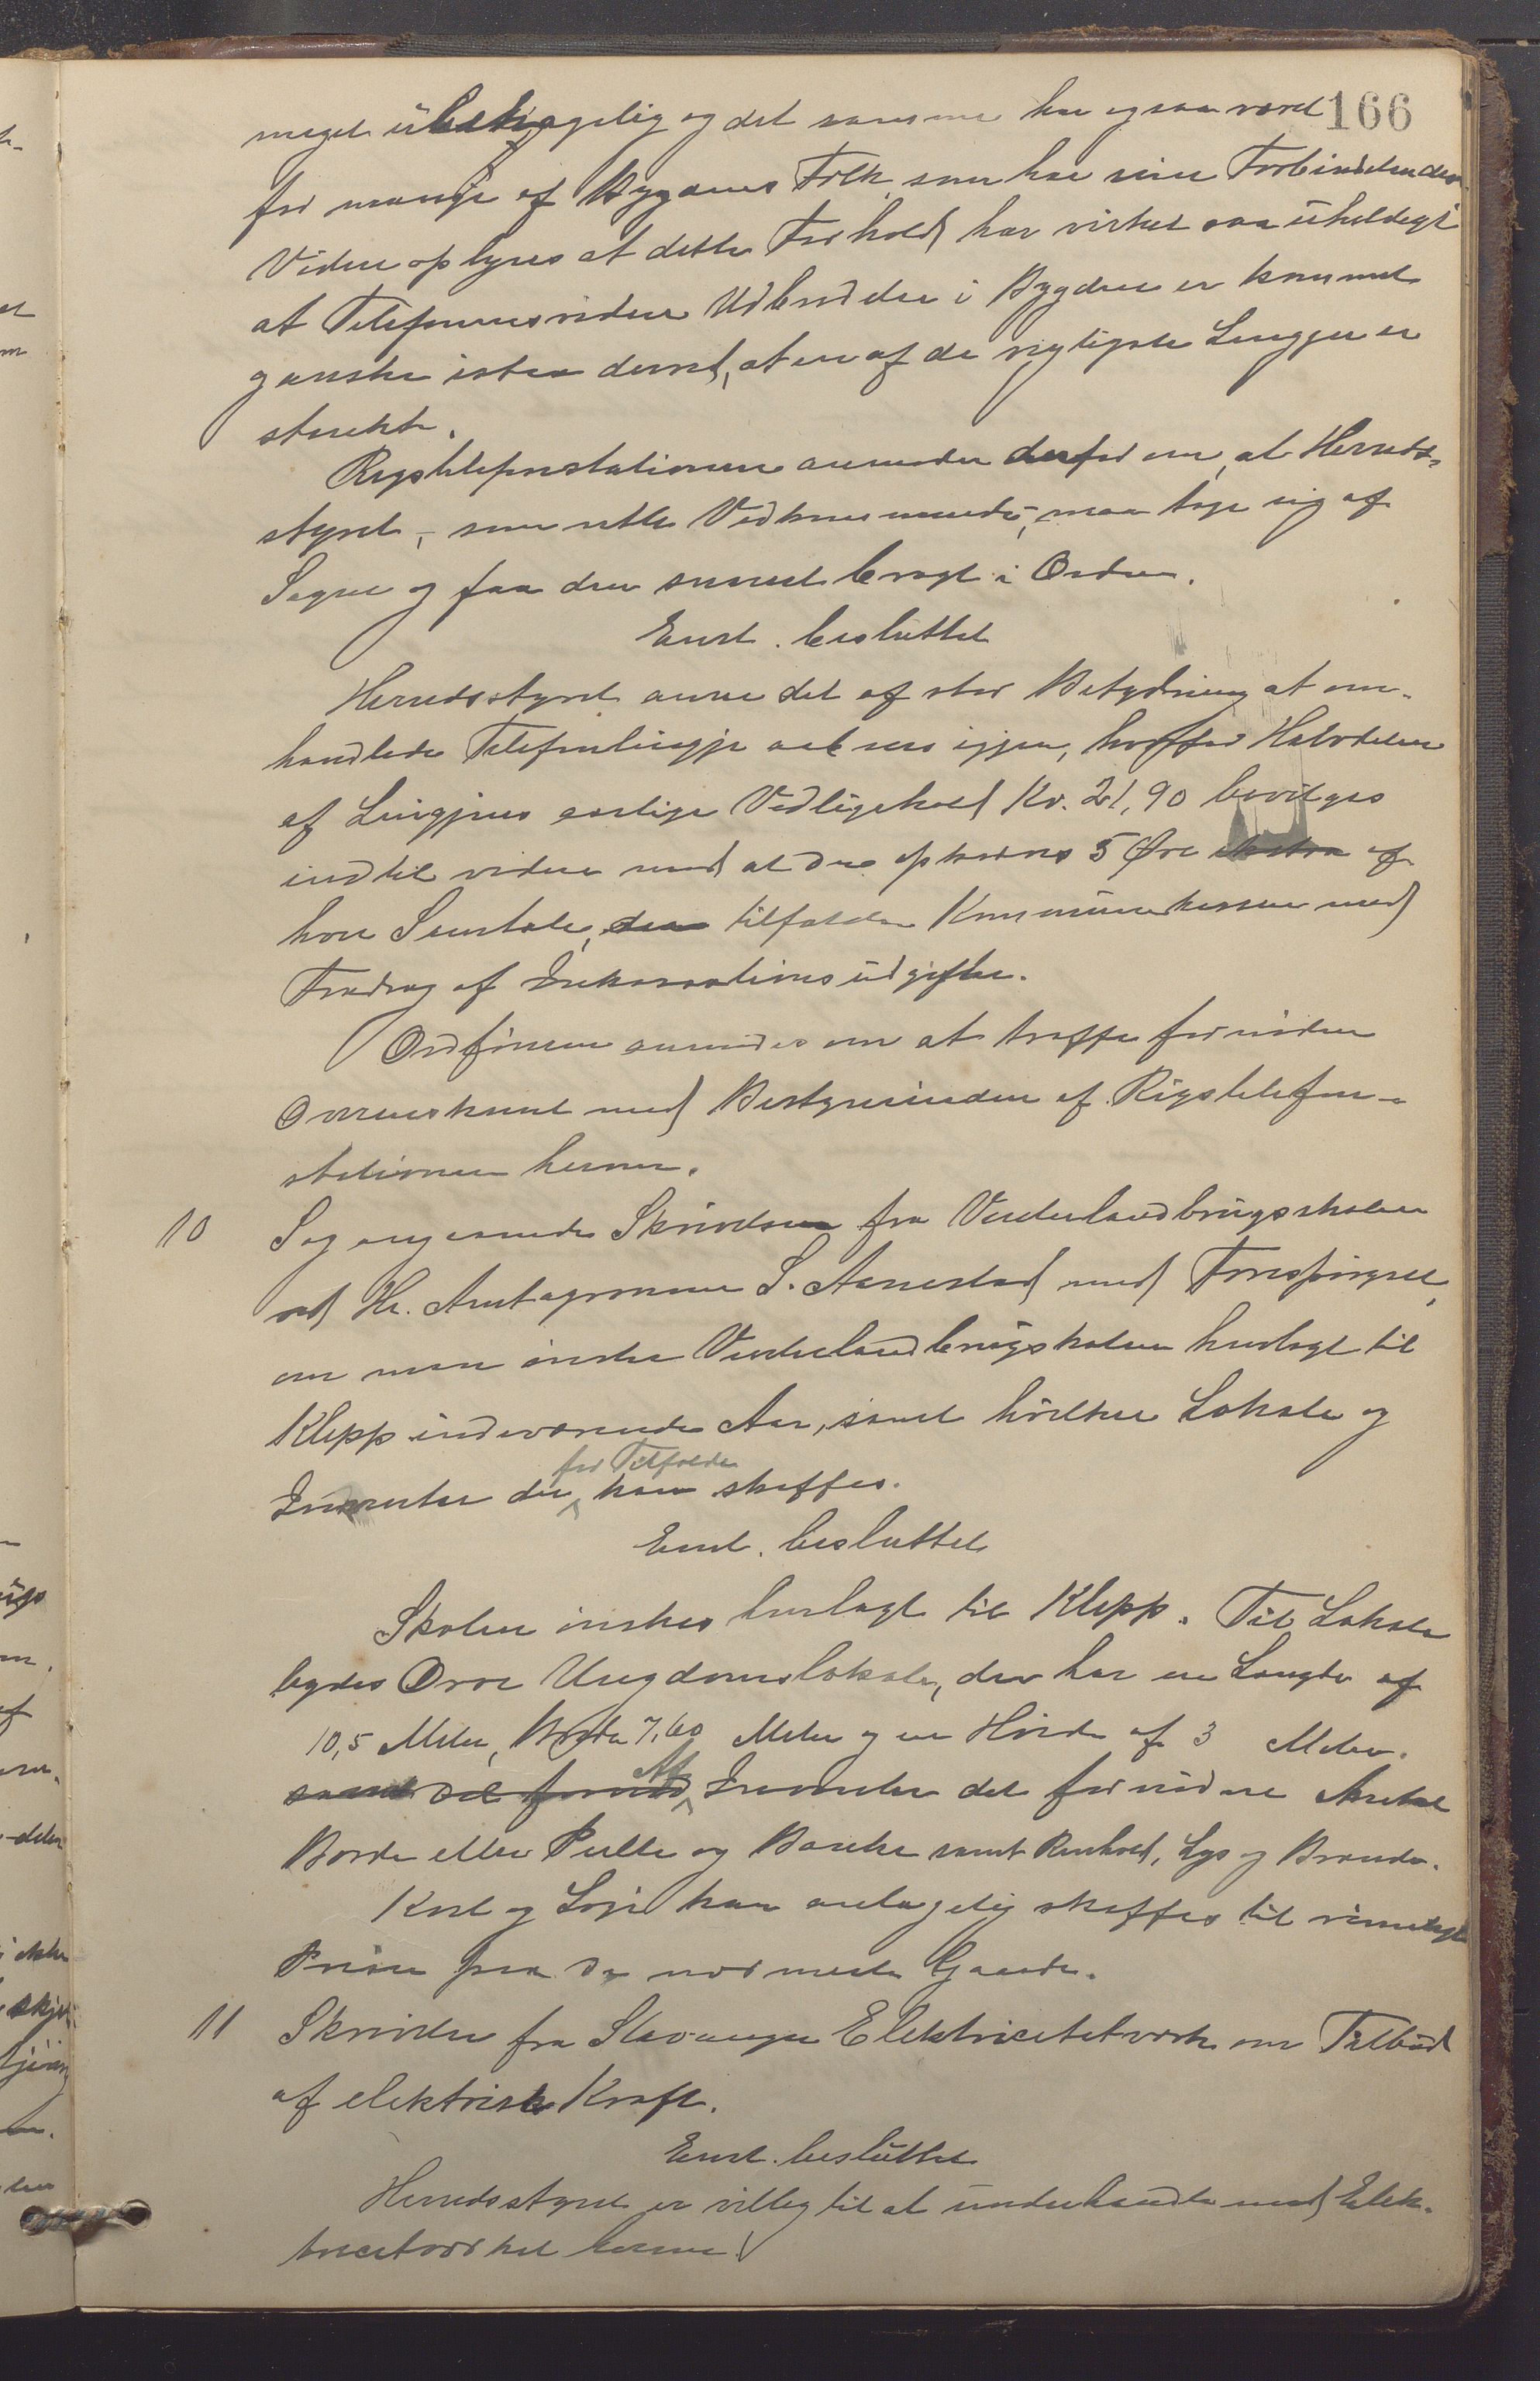 166
meget übehagelig og det samme har ogsaa været
for mange af Bygdens Folk som har sine Forbindelser der
Videre oplyses at dette Forhold har virket saa üheldigt
at Telefonens videre Udbredelse i Bygden er kommet
ganske istaa derved, at en af de vigtigste Lingjer er
strækt.
Rigstelefonstationen anmoder derfor om, at Herreds-
styret, - som rette Vedkommende, - maa tage sig af
Sagen og faa den snarest bragt i Orden.
Enst. besluttet
Herredsstyret anser det af stor Betydning at om-
handlede Telefonlingje aabnes igjen, hvorfor Halvdelen
af Lingjens aarlige Vedligehold Kr. 21,90 bevilges
indtil videre mod at der opkræves 5 Øre ekstra af
hver Samtale, der tilfalder Kommünekassen med
Fradrag af Inkassationsüdgifter.
Ordføreren anmodes om at træffe fornøden
Overenskomst med Bestyrerinden af Rigstelefon-
stationen herom.
10 Sag angaaende Skrivelse fra Vandrelandbrügsskolen
ved Hr. Amtagronom S. Aanestad med Forespørgsel,
om man ønsker Vandrelandbrügsskolen henlagt til
Klepp indeværende Aar, samt hvilket Lokale og
for Tilfælde
Inventar der kan skaffes.
Enst. besluttet
Skolen ønskes henlagt til Klepp. Til Lokale
bydes Orre Ungdomslokale, der har en Længde af
10,5 Meter, Bredde 7,60 Meter og en Høide af 3 Meter.
samt det fornød Af Inventar det fornødne Antal
Borde eller Pulte og Bænke samt Renhold, Lys og Brænde.
Kost og Logi kan antagelig skaffes til rimelige
Priser paa de nærmeste Gaarde.
11 Skrivelse fra Stavanger Elektricitetsværk om Tilbüd
af elektrisk Kraft.
Enst. beslüttet
Herredsstyret er villig til at ünderhandle med Elek-
tricitetsværket herom.